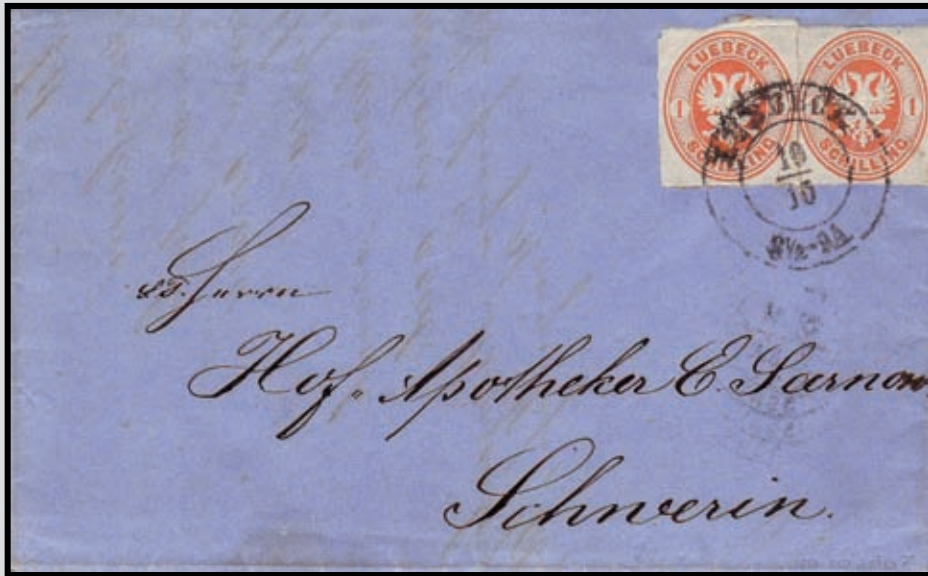 LUEBECK
1
SCHILLING
LUEBECK
1
SCHILLING
LUEBECK
10
8½-9A
Herrn
Hof-Apotheker E. Sarnow
Schwerin.